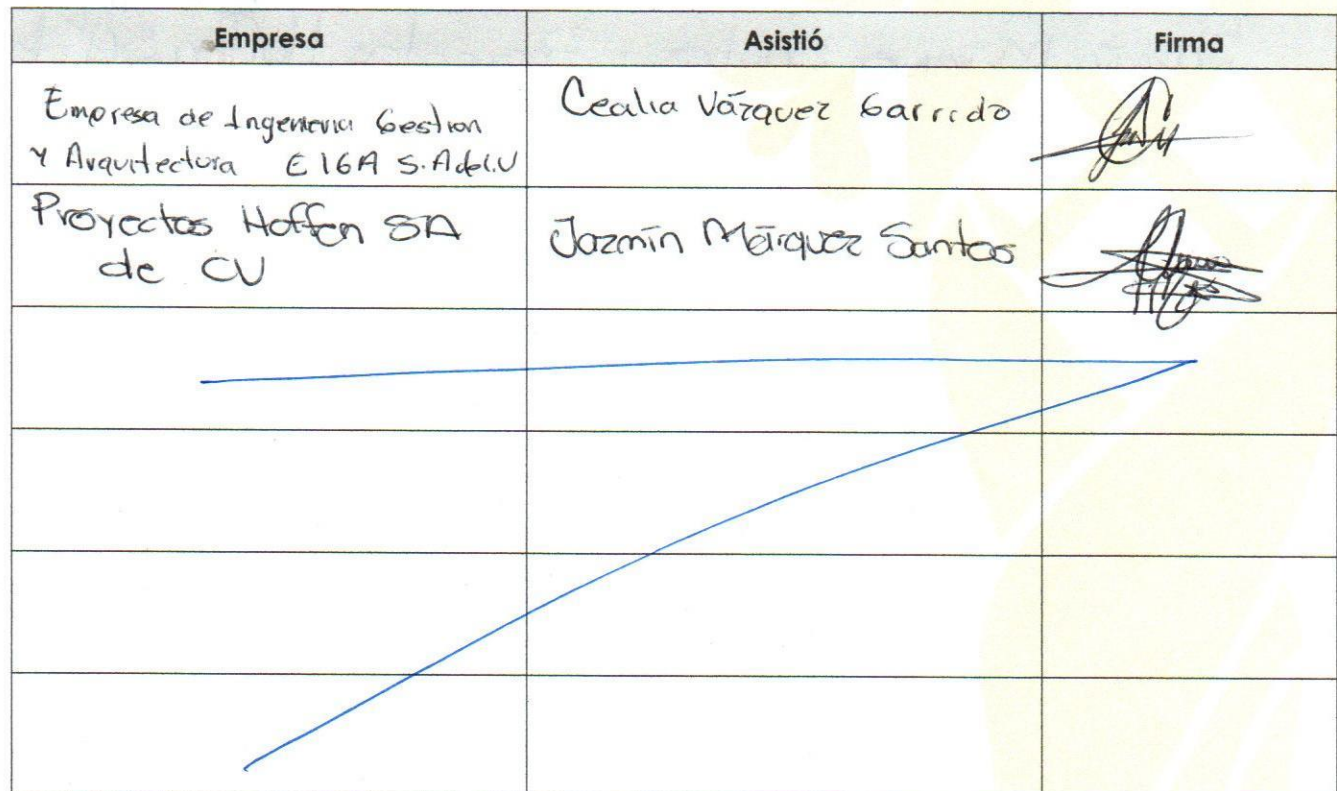 Empresa Asistió Firma
Empresa de Ingenieria Gestion
y Arquitectura EIGA S.A de C.V
Cecilia Vázquez Garrido
Proyectos Hoffen SA
de CV
Jazmín Márquez Santos